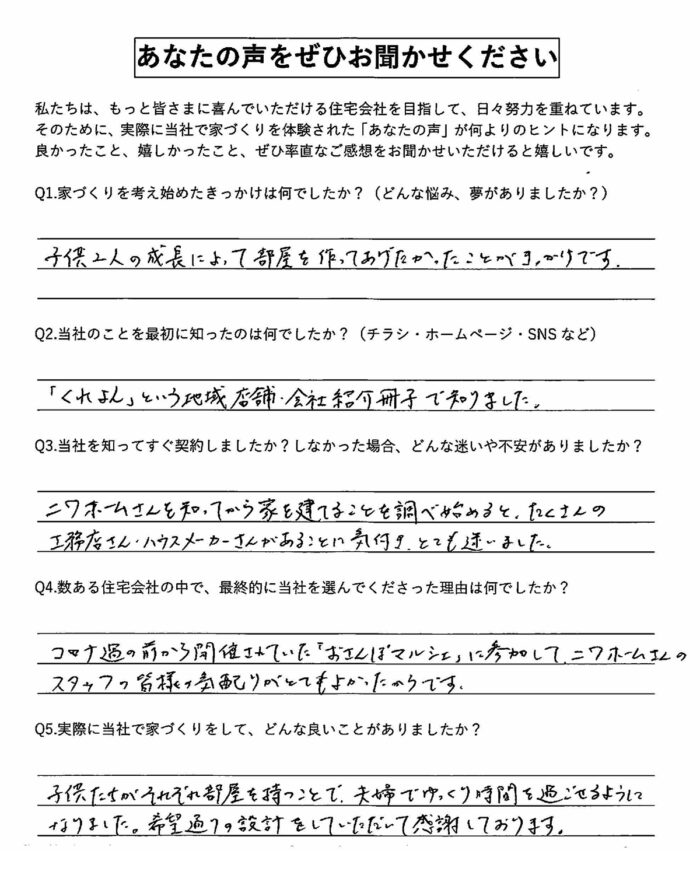 あなたの声をぜひお聞かせください
私たちは、もっと皆さまに喜んでいただける住宅会社を目指して、日々努力を重ねています。
そのために、実際に当社で家づくりを体験された「あなたの声」が何よりのヒントになります。
良かったこと、嬉しかったこと、ぜひ率直なご感想をお聞かせいただけると嬉しいです。
Q1.家づくりを考え始めたきっかけは何でしたか？（どんな悩み、夢がありましたか？）
子供2人の成長によって部屋を作ってあげたかったことがきっかけです.
Q2.当社のことを最初に知ったのは何でしたか？（チラシ・ホームページ・SNS など）
「くれよん」という地域店舗・会社紹介冊子で知りました。
Q3.当社を知ってすぐ契約しましたか？しなかった場合、どんな迷いや不安がありましたか？
ニワホームさんを知ってから家を建てることを調べ始めると、たくさんの
工務店さん・ハウスメーカーさんがあることに気付き、とても迷いました。
Q4.数ある住宅会社の中で、最終的に当社を選んでくださった理由は何でしたか？
コロナ過の前から開催されていた「おさんぽマルシェ」に参加して、ニワホームさんの
スタッフの皆様の気配りがとてもよかったからです.
Q5.実際に当社で家づくりをして、どんな良いことがありましたか？
子供たちがそれぞれ部屋を持つことで、夫婦でゆっくり時間を過ごせるように
なりました。希望通りの設計をしていただいて感謝しております。